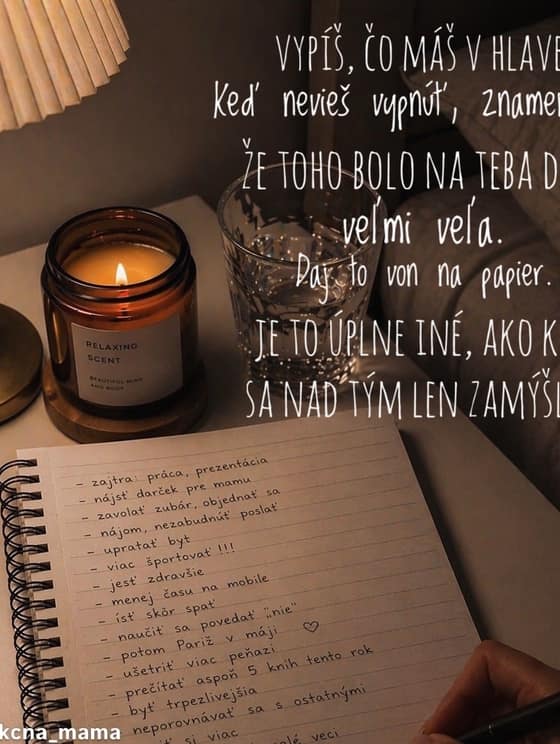 VYPÍŠ, ČO MÁŠ V HLAVE
Keď nevieš vypnúť, znamen
ŽE TOHO BOLO NA TEBA D
veľmi veľa.
Daj to von na papier.
JE TO ÚPLNE INÉ, AKO K
SA NAD TÝM LEN ZAMÝŠ
RELAXING
SCENT
- zajtra: práca, prezentácia
- nájsť darček pre mamu
- zavolať zubár, objednať sa
- nájom, nezabudnúť poslať
- upratať byt
- viac športovať !!!
- jesť zdravšie
- menej času na mobile
- ísť skôr spať
- naučiť sa povedať "nie"
- potom Pariž v máji ♡
- ušetriť viac peňazí
- prečítať aspoň 5 kníh tento rok
- být trpezlivejšia
neporovnávať sa s ostatnými
si viac veci
kcna_mama